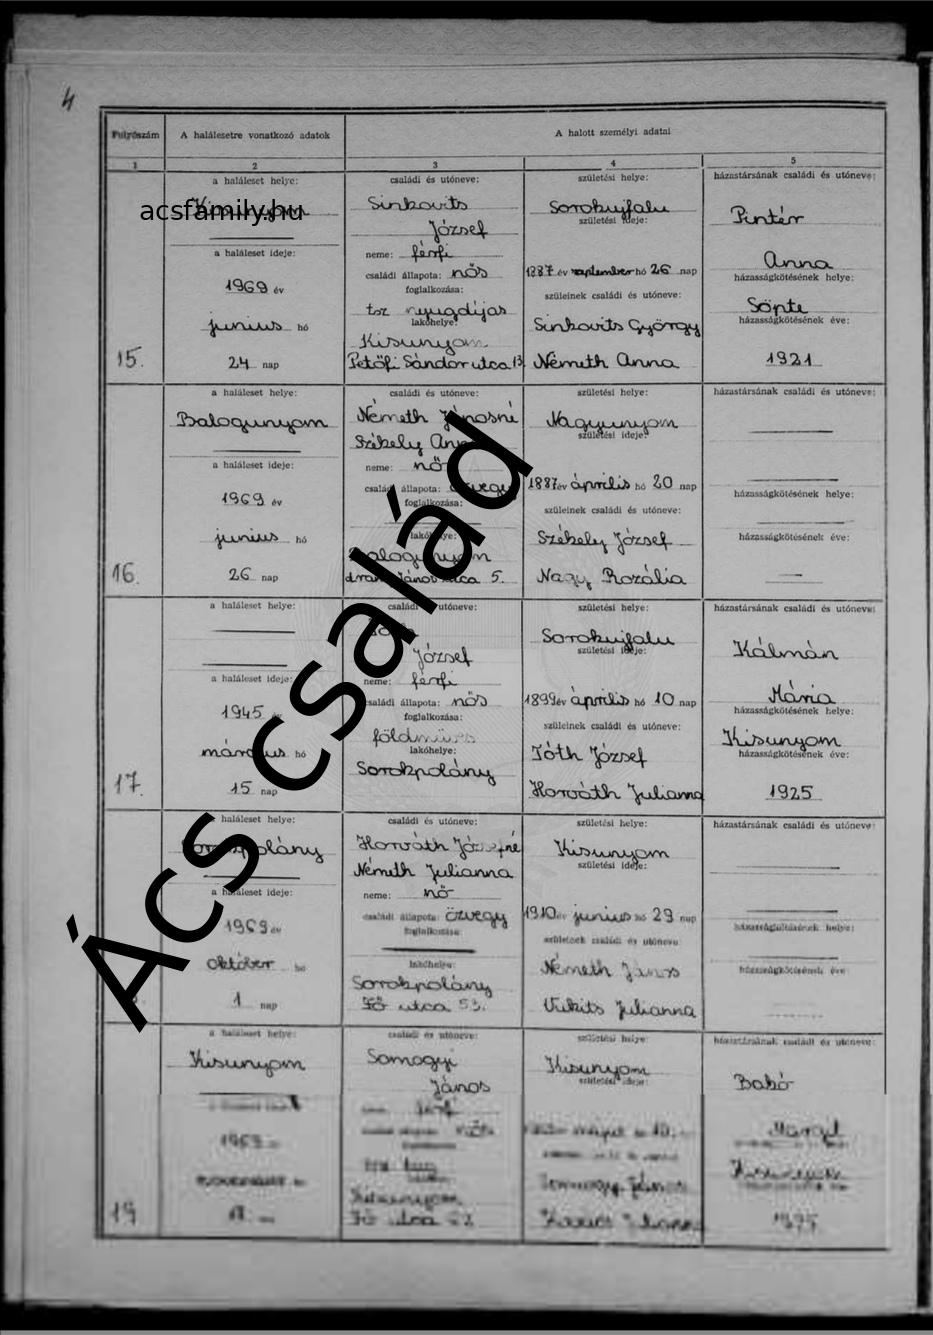 4
Folyószám
A halálesetre vonatkozó adatok
A halott személyi adatai
1 2 3 4 5
a haláleset helye:
Kisunyom
acsfamily.hu
a haláleset ideje:
1969 év
junius hó
15. 24 nap
családi és utóneve:
Sinkovits
József
neme: férfi
családi állapota: nős
foglalkozása:
tsz nyugdíjas
lakóhelye:
Kisunyom
Petőfi Sándor utca 13
születési helye:
Sorokujfalu
születési ideje:
1887 év september hó 26 nap
szüleinek családi és utóneve:
Sinkovits György
Németh Anna
házastársának családi és utóneve:
Pintér
Anna
házasságkötésének helye:
Söpte
házasságkötésének éve:
1921
a haláleset helye:
Balogunyom
a haláleset ideje:
1969 év
junius hó
16. 26 nap
családi és utóneve:
Németh Jánosné
Székely
neme: nő
családi állapota: özvegy
foglalkozása:
lakóhelye:
Balogunyom
János utca 5.
születési helye:
Nagyunyom
születési ideje:
1887 év április hó 20 nap
szüleinek családi és utóneve:
Székely József
Nagy Rozália
házastársának családi és utóneve:
házasságkötésének helye:
házasságkötésének éve:
a haláleset helye:
a haláleset ideje:
1945 év
március hó
17. 15 nap
családi és utóneve:
József
neme: férfi
családi állapota: nős
foglalkozása:
földműves
lakóhelye:
Sorokpolány
születési helye:
Sorokujfalu
születési ideje:
1899 év április hó 10 nap
szüleinek családi és utóneve:
Tóth József
Horváth Julianna
házastársának családi és utóneve:
Kálmán
Mária
házasságkötésének helye:
Kisunyom
házasságkötésének éve:
1925
a haláleset helye:
Sorokpolány
a haláleset ideje:
1969 év
október hó
1 nap
családi és utóneve:
Horváth Józsefné
Németh Julianna
neme: nő
családi állapota: özvegy
foglalkozása:
lakóhelye:
Sorokpolány
Fő utca 53.
születési helye:
Kisunyom
születési ideje:
1910 év junius hó 29 nap
szüleinek családi és utóneve:
Németh János
Vukits Julianna
házastársának családi és utóneve:
házasságkötésének helye:
házasságkötésének éve:
a haláleset helye:
Kisunyom
1969
19
családi és utóneve:
Somogyi
János
férfi
nős
Kisunyom
Fő utca
születési helye:
Kisunyom
születési ideje:
Somogyi János
házastársának családi és utóneve:
Babó
Margit
Kisunyom
Ács család